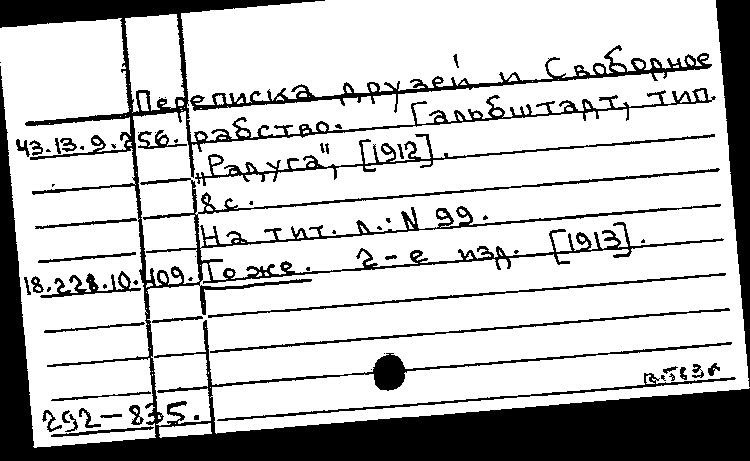 Переписка друзей и Свободное
43.13.9.256. рабство. Гальбштадт, тип.
„Радуга", [1912].
8 с.
На тит. л.: N 99.
18.228.10.409. То же. 2-е изд. [1913].
292-835.